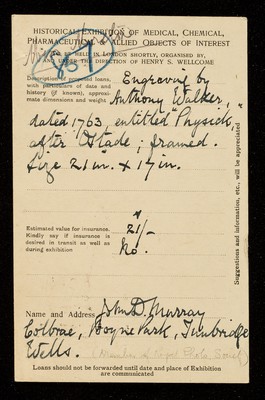 HISTORICAL EXHIBITION OF MEDICAL, CHEMICAL,
PHARMACEUTICAL & ALLIED OBJECTS OF INTEREST
TO BE HELD IN LONDON SHORTLY, ORGANISED BY,
AND UNDER THE DIRECTION OF HENRY S. WELLCOME
857
Description of proposed loans,
with particulars of date and
history (if known), approxi-
mate dimensions and weight
Engraving by
Anthony Walker,
dated 1763, entitled "Physick,"
after Ostade; framed.
Size 21 in. x 17 in.
Estimated value for insurance.
Kindly say if insurance is
desired in transit as well as
during exhibition
21/-
No.
Suggestions and information, etc., will be appreciated
Name and Address John D. Murray
Colbrae, Boyne Park, Tunbridge
Wells.
(Member of Royal Photo. Society)
Loans should not be forwarded until date and place of Exhibition
are communicated